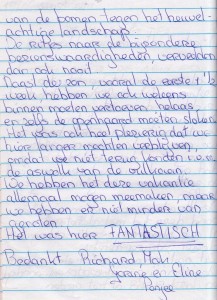 van de bomen tegen het heuvel-
achtige landschap.
De ritjes naar de bijzondere
bezienswaardigheden, vervelden
dan ook nooit.
Naast de zon, vooral de eerste 1½
week hebben we ook weleens
binnen moeten vertoeven helaas,
en zelfs de openhaard moeten stoken.
Het was ook heel plezierig dat we
hier langer mochten verblijven,
omdat we niet terug konden i.v.m.
de aswolk van de vulkaan.
We hebben het deze vakantie
allemaal mogen meemaken, maar
we hebben er niet minder van
genoten.
Het was hier FANTASTISCH
Bedankt Richard
& Eline